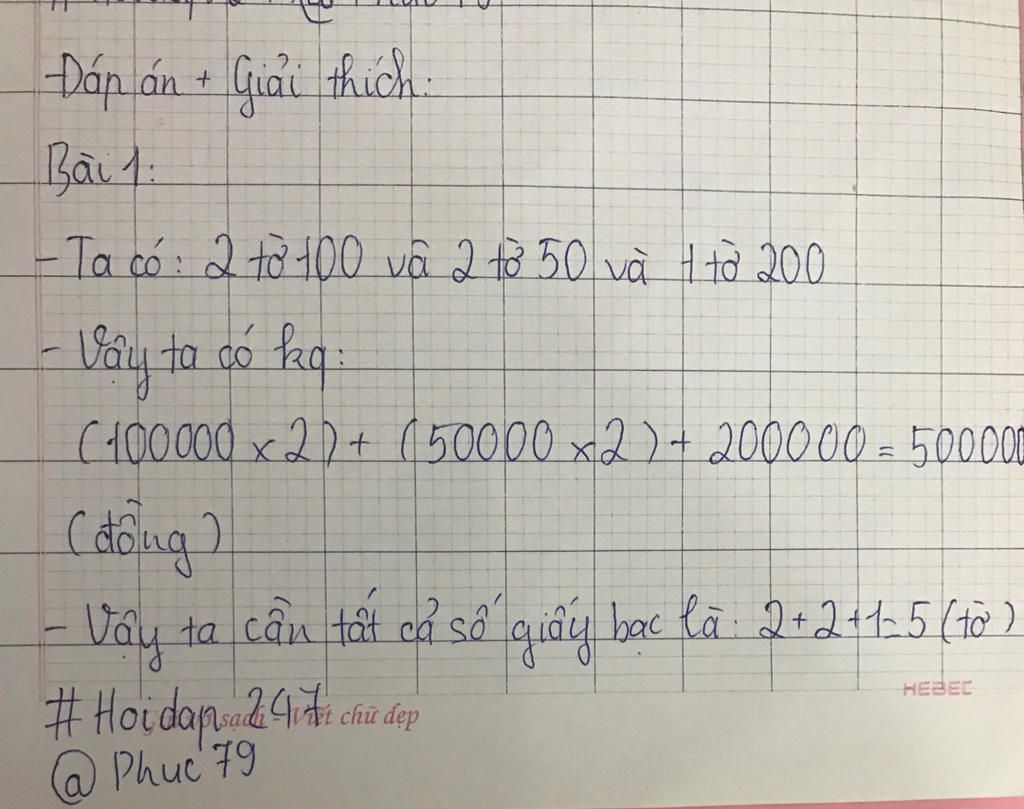 -Đáp án + Giải thích:
Bài 1:
- Ta có: 2 tờ 100 và 2 tờ 50 và 1 tờ 200
- Vậy ta có kq:
(100000 x 2) + (50000 x 2) + 200000 = 500000
(đồng)
- Vậy ta cần tất cả số giấy bạc là: 2+2+1=5 (tờ)
HEBEC
#Hoidap 247
sạch - Viết chữ đẹp
@Phuc 79